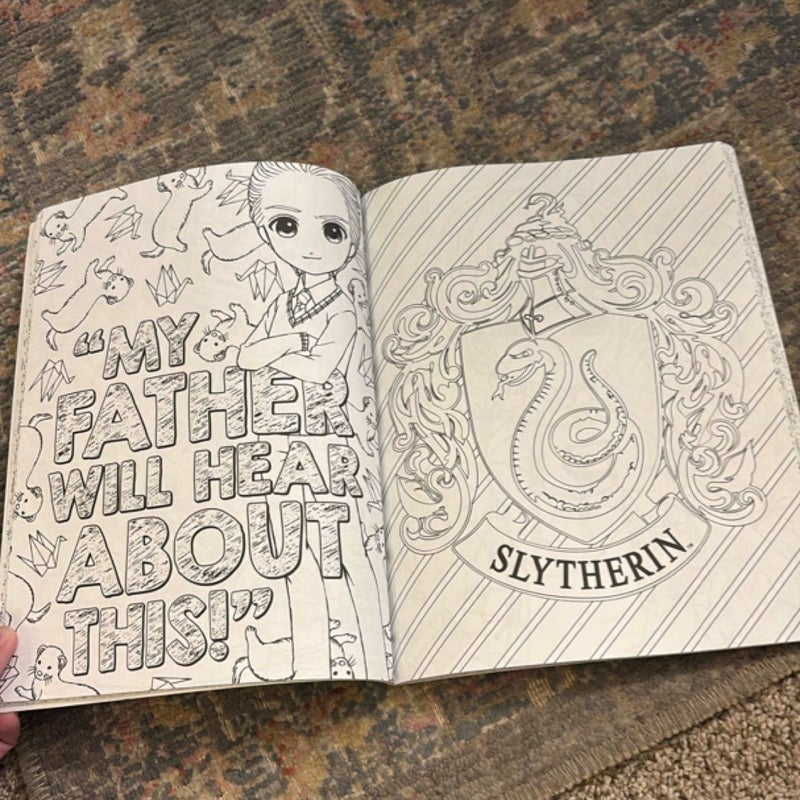 “MY
FATHER
WILL HEAR
ABOUT
THIS!”
SLYTHERIN™